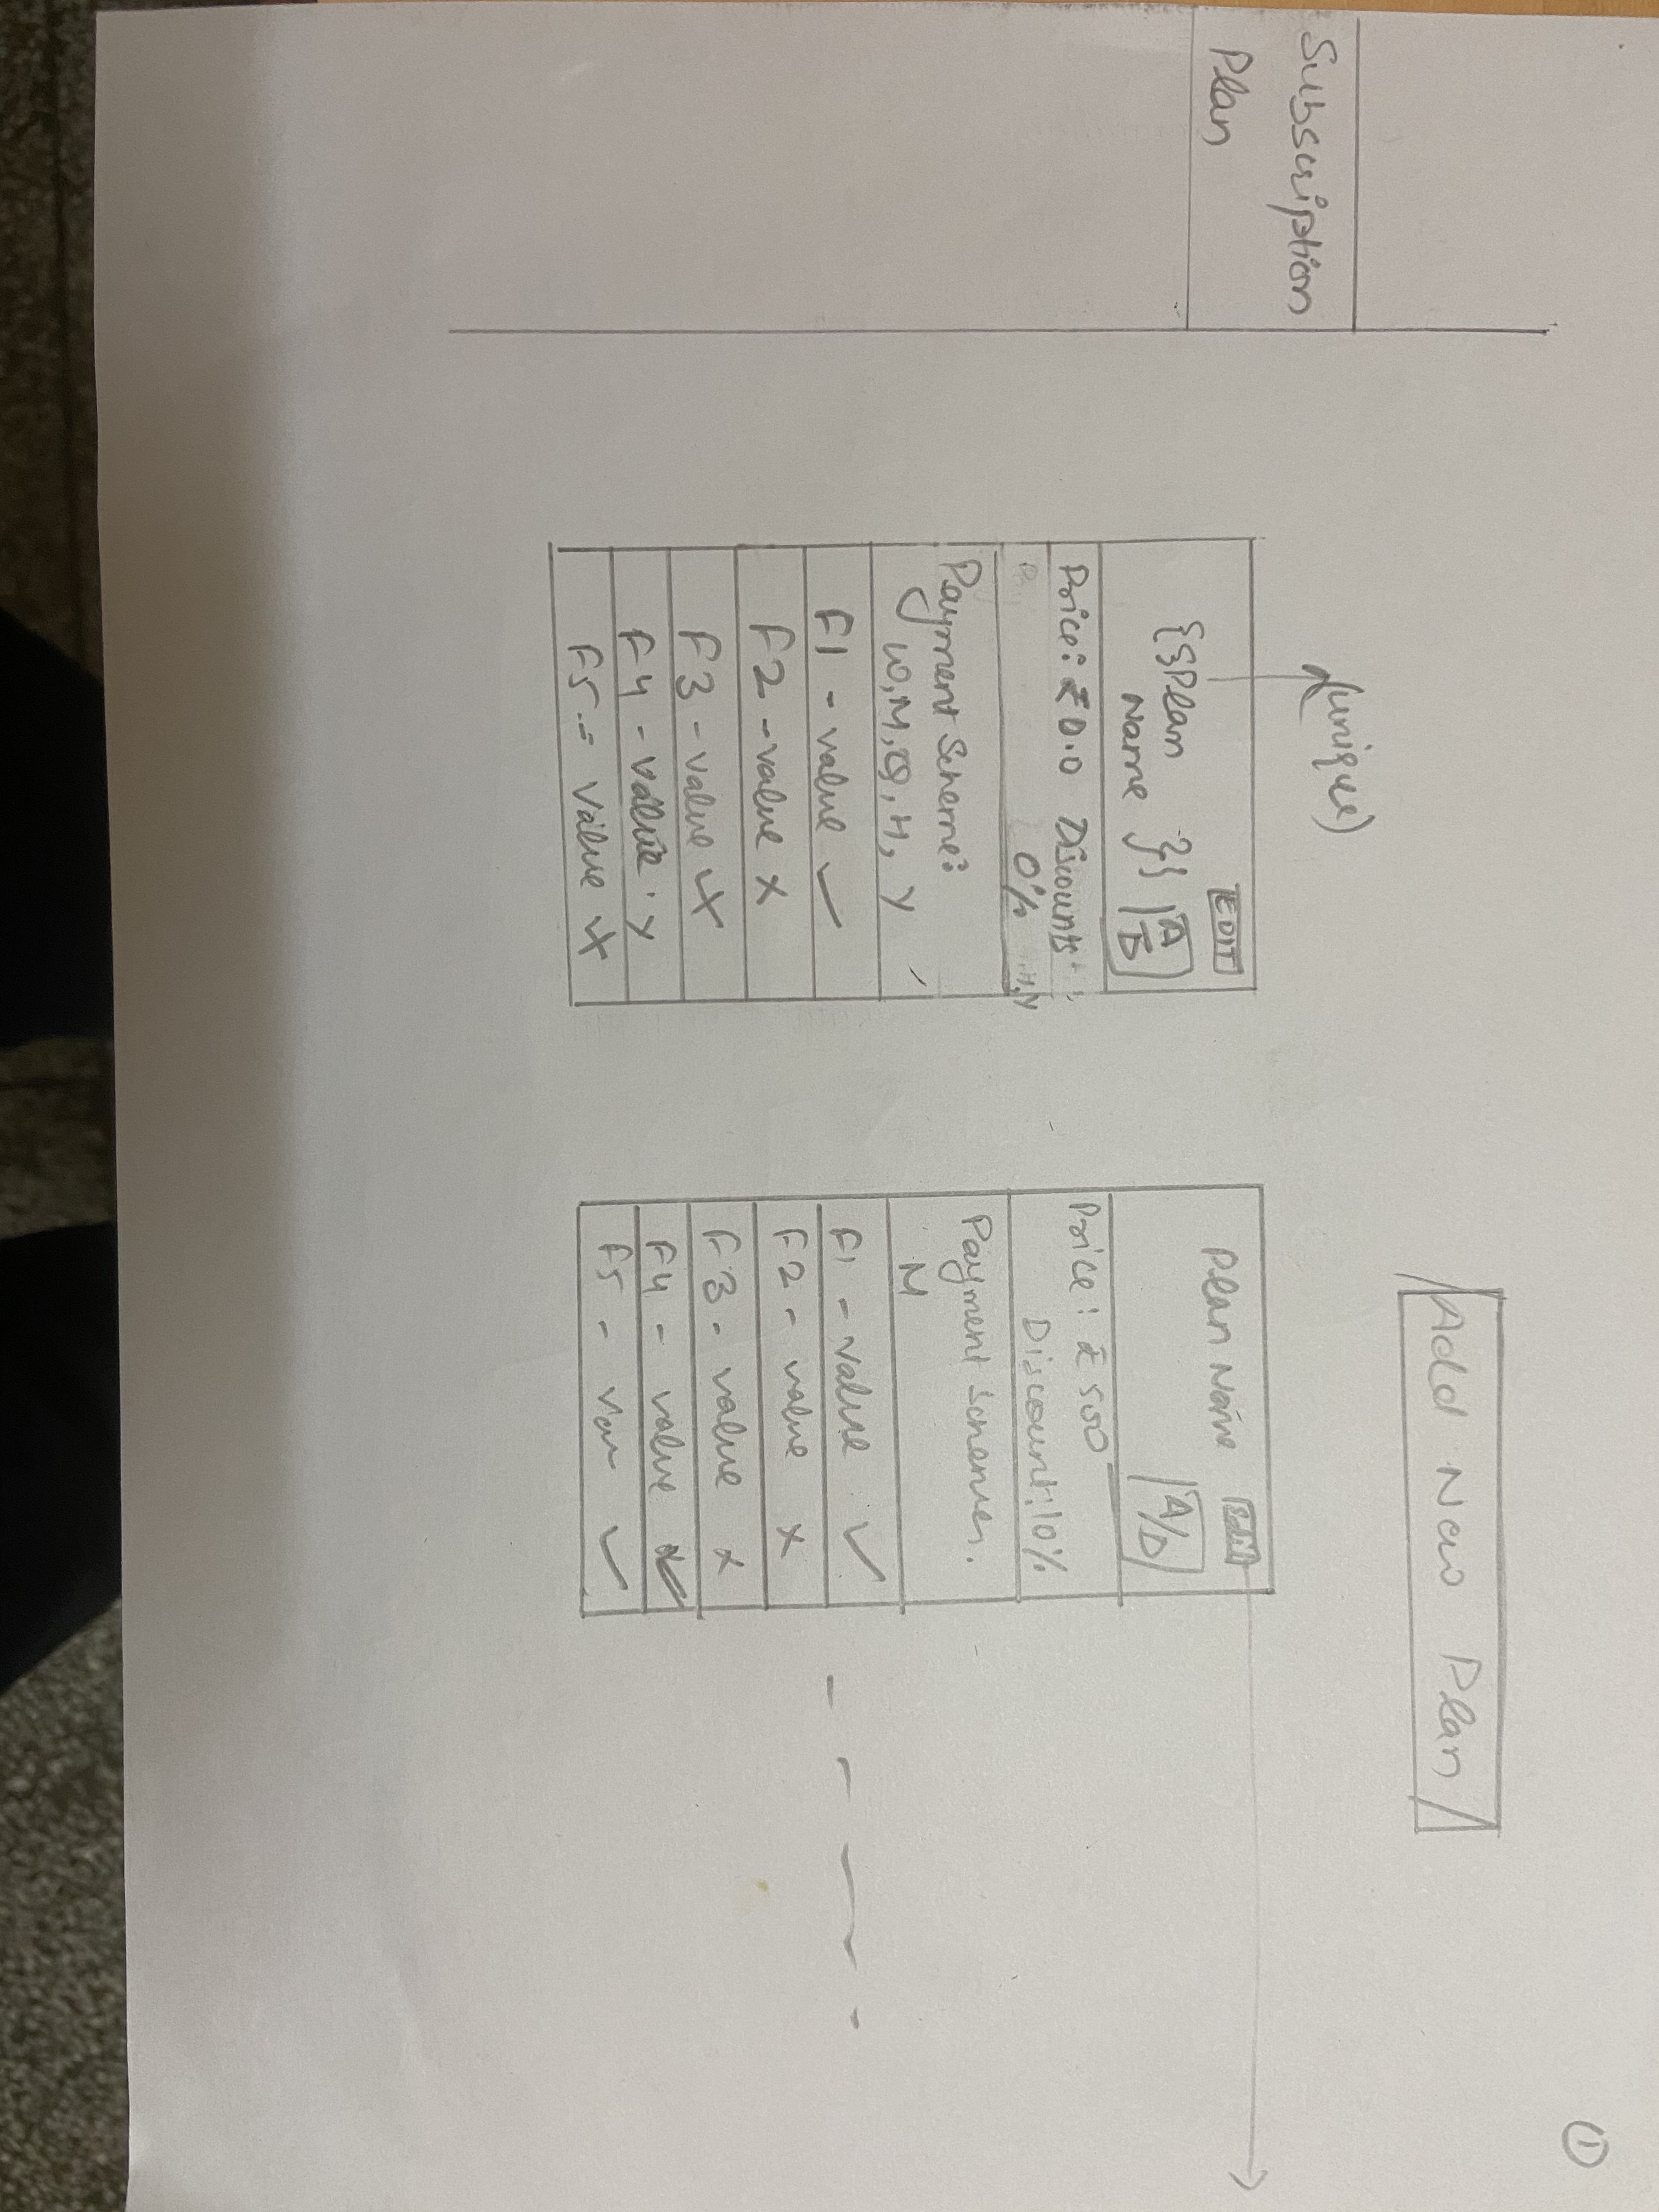 ①
Subscription
Plan
Add New Plan
(unique)
EDIT
{{Plan
Name }}
A
Price: ₹ 0.0 Discounts
0%
Payment Scheme:
W, M, Q, H, Y
F1 - value ✓
F2 - value x
F3 - value x
F4 - value x
F5 - value x
Plan Name
A/D
Price: ₹ 500
Discount: 10%
Payment Schemes.
M
F1 - value ✓
F2 - value x
F3 - value x
F4 - value ✓
F5 - ✓